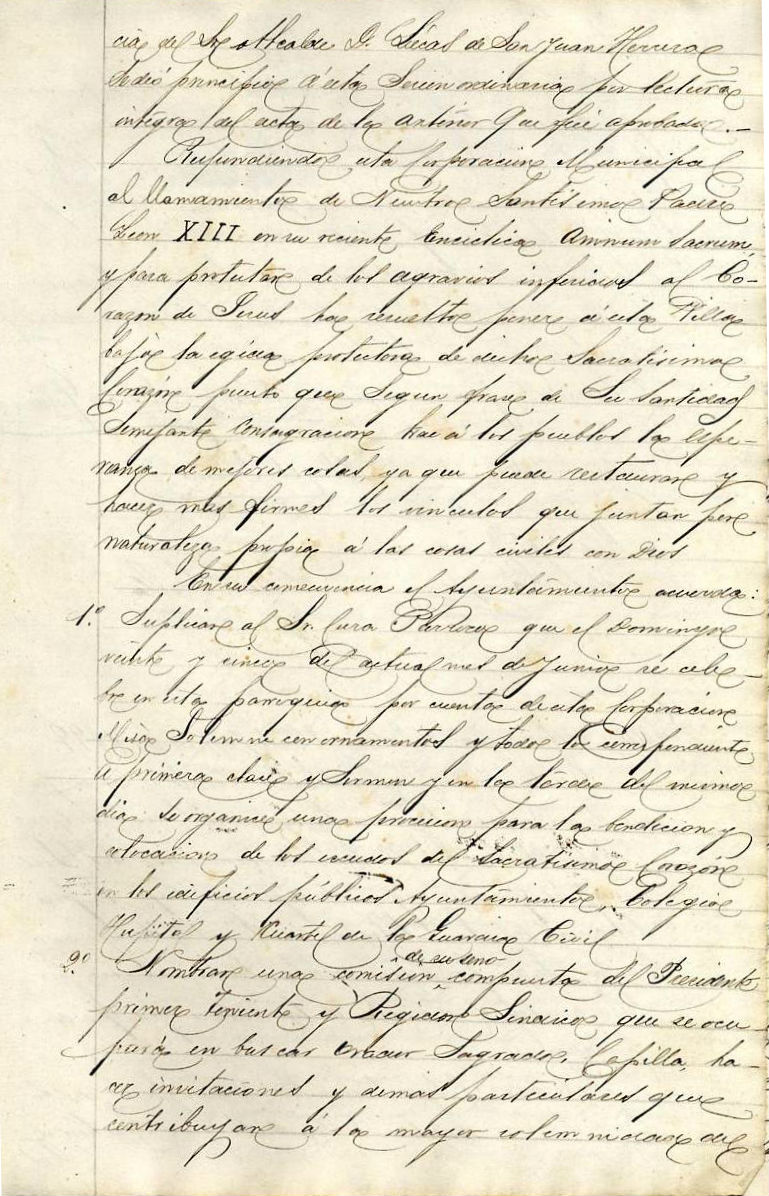 cia del Sr. Alcalde D. Lúcas de San Juan Herrera
se dió principio á esta Sesion ordinaria por lectura
integra del acta de la anterior que fué aprobada.—
Respondiendo esta Corporacion Municipal
al llamamiento de Nuestro Santisimo Padre
Leon XIII en su reciente Enciclica Annum Sacrum,
y para protestar de los agravios inferidos al Co-
razon de Jesus ha resuelto poner á esta Villa
bajo la egida protectora de dicho Sacratisimo
Corazón puesto que segun frase de Su Santidad
Semejante Consagracion trae á los pueblos la espe-
ranza de mejores cosas, ya que puede restaurar y
hacer mas firmes los vinculos que juntan por
naturaleza propia á las cosas civiles con Dios
En su consecuencia el Ayuntamiento acuerda:
1.º Suplicar al Sr. Cura Párroco que el Domingo
veinte y cinco del actual mes de Junio se cele-
bre en esta parroquia por cuenta de esta Corporacion
Misa Solemne con ornamentos y todo lo correspondiente
á primera clase y Sermon y en la tarde del mismo
dia se organice una procesion para la bendicion y
colocacion de los escudos del Sacratisimo Corazón
en los edificios públicos Ayuntamiento, Colegio
Hospital y Cuartel de la Guardia Civil
de su seno
2.º Nombrar una comision compuesta del Presidente
primer teniente y Regidor Sindico que se ocu-
pará en buscar orador Sagrado, Capilla, ha-
cer invitaciones y demas particulares que
contribuyan á la mayor solemnidad de